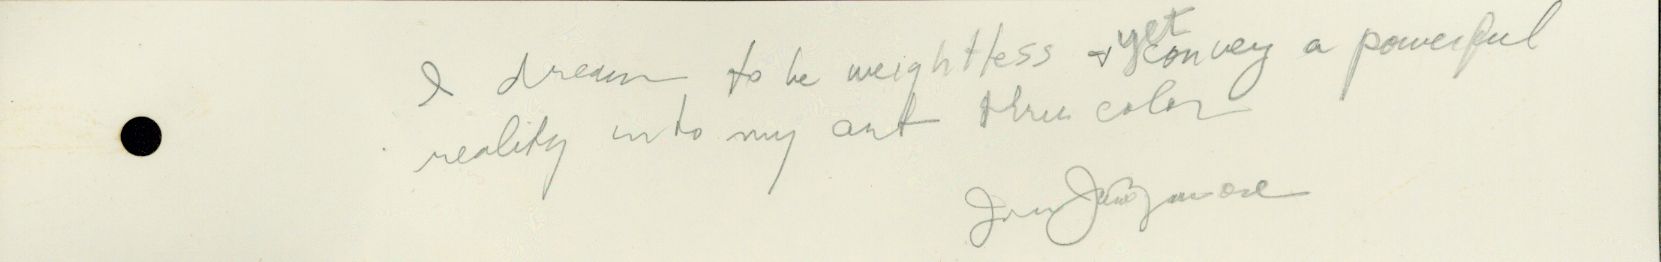 I dream to be weightless & yet convey a powerful
reality into my art thru color